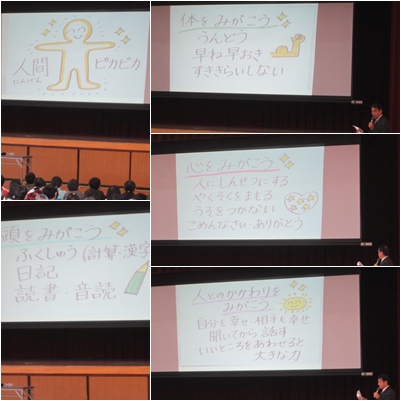 人間
にんげん
ピカピカ
体をみがこう
うんどう
早ね早おき
すききらいしない
心をみがこう
人にしんせつにする
やくそくをまもる
うそをつかない
ごめんなさい・ありがとう
頭をみがこう
ふくしゅう(計算・漢字
日記
読書・音読
人とのかかわりを
みがこう
自分も幸せ 相手も幸せ
聞いてから 話す
いいところをあわせると
大きな力